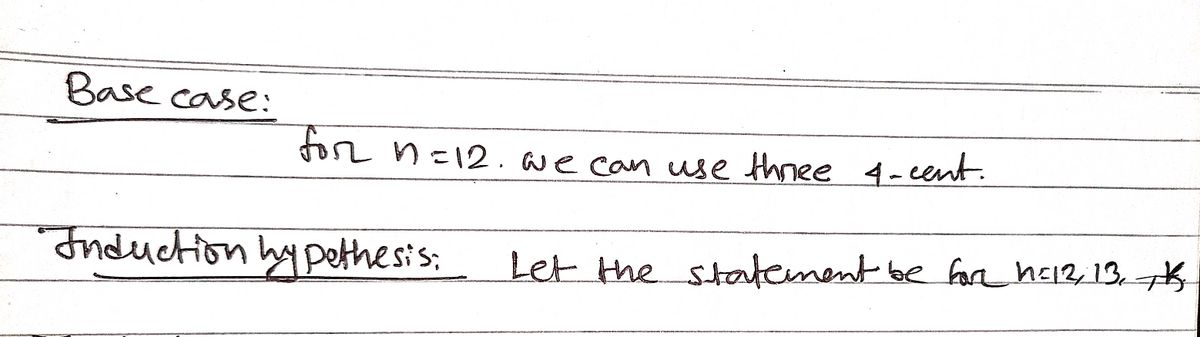 Base case:
for n=12. we can use three 4-cent.
Induction hypothesis: Let the statement be for n=12, 13, -, k